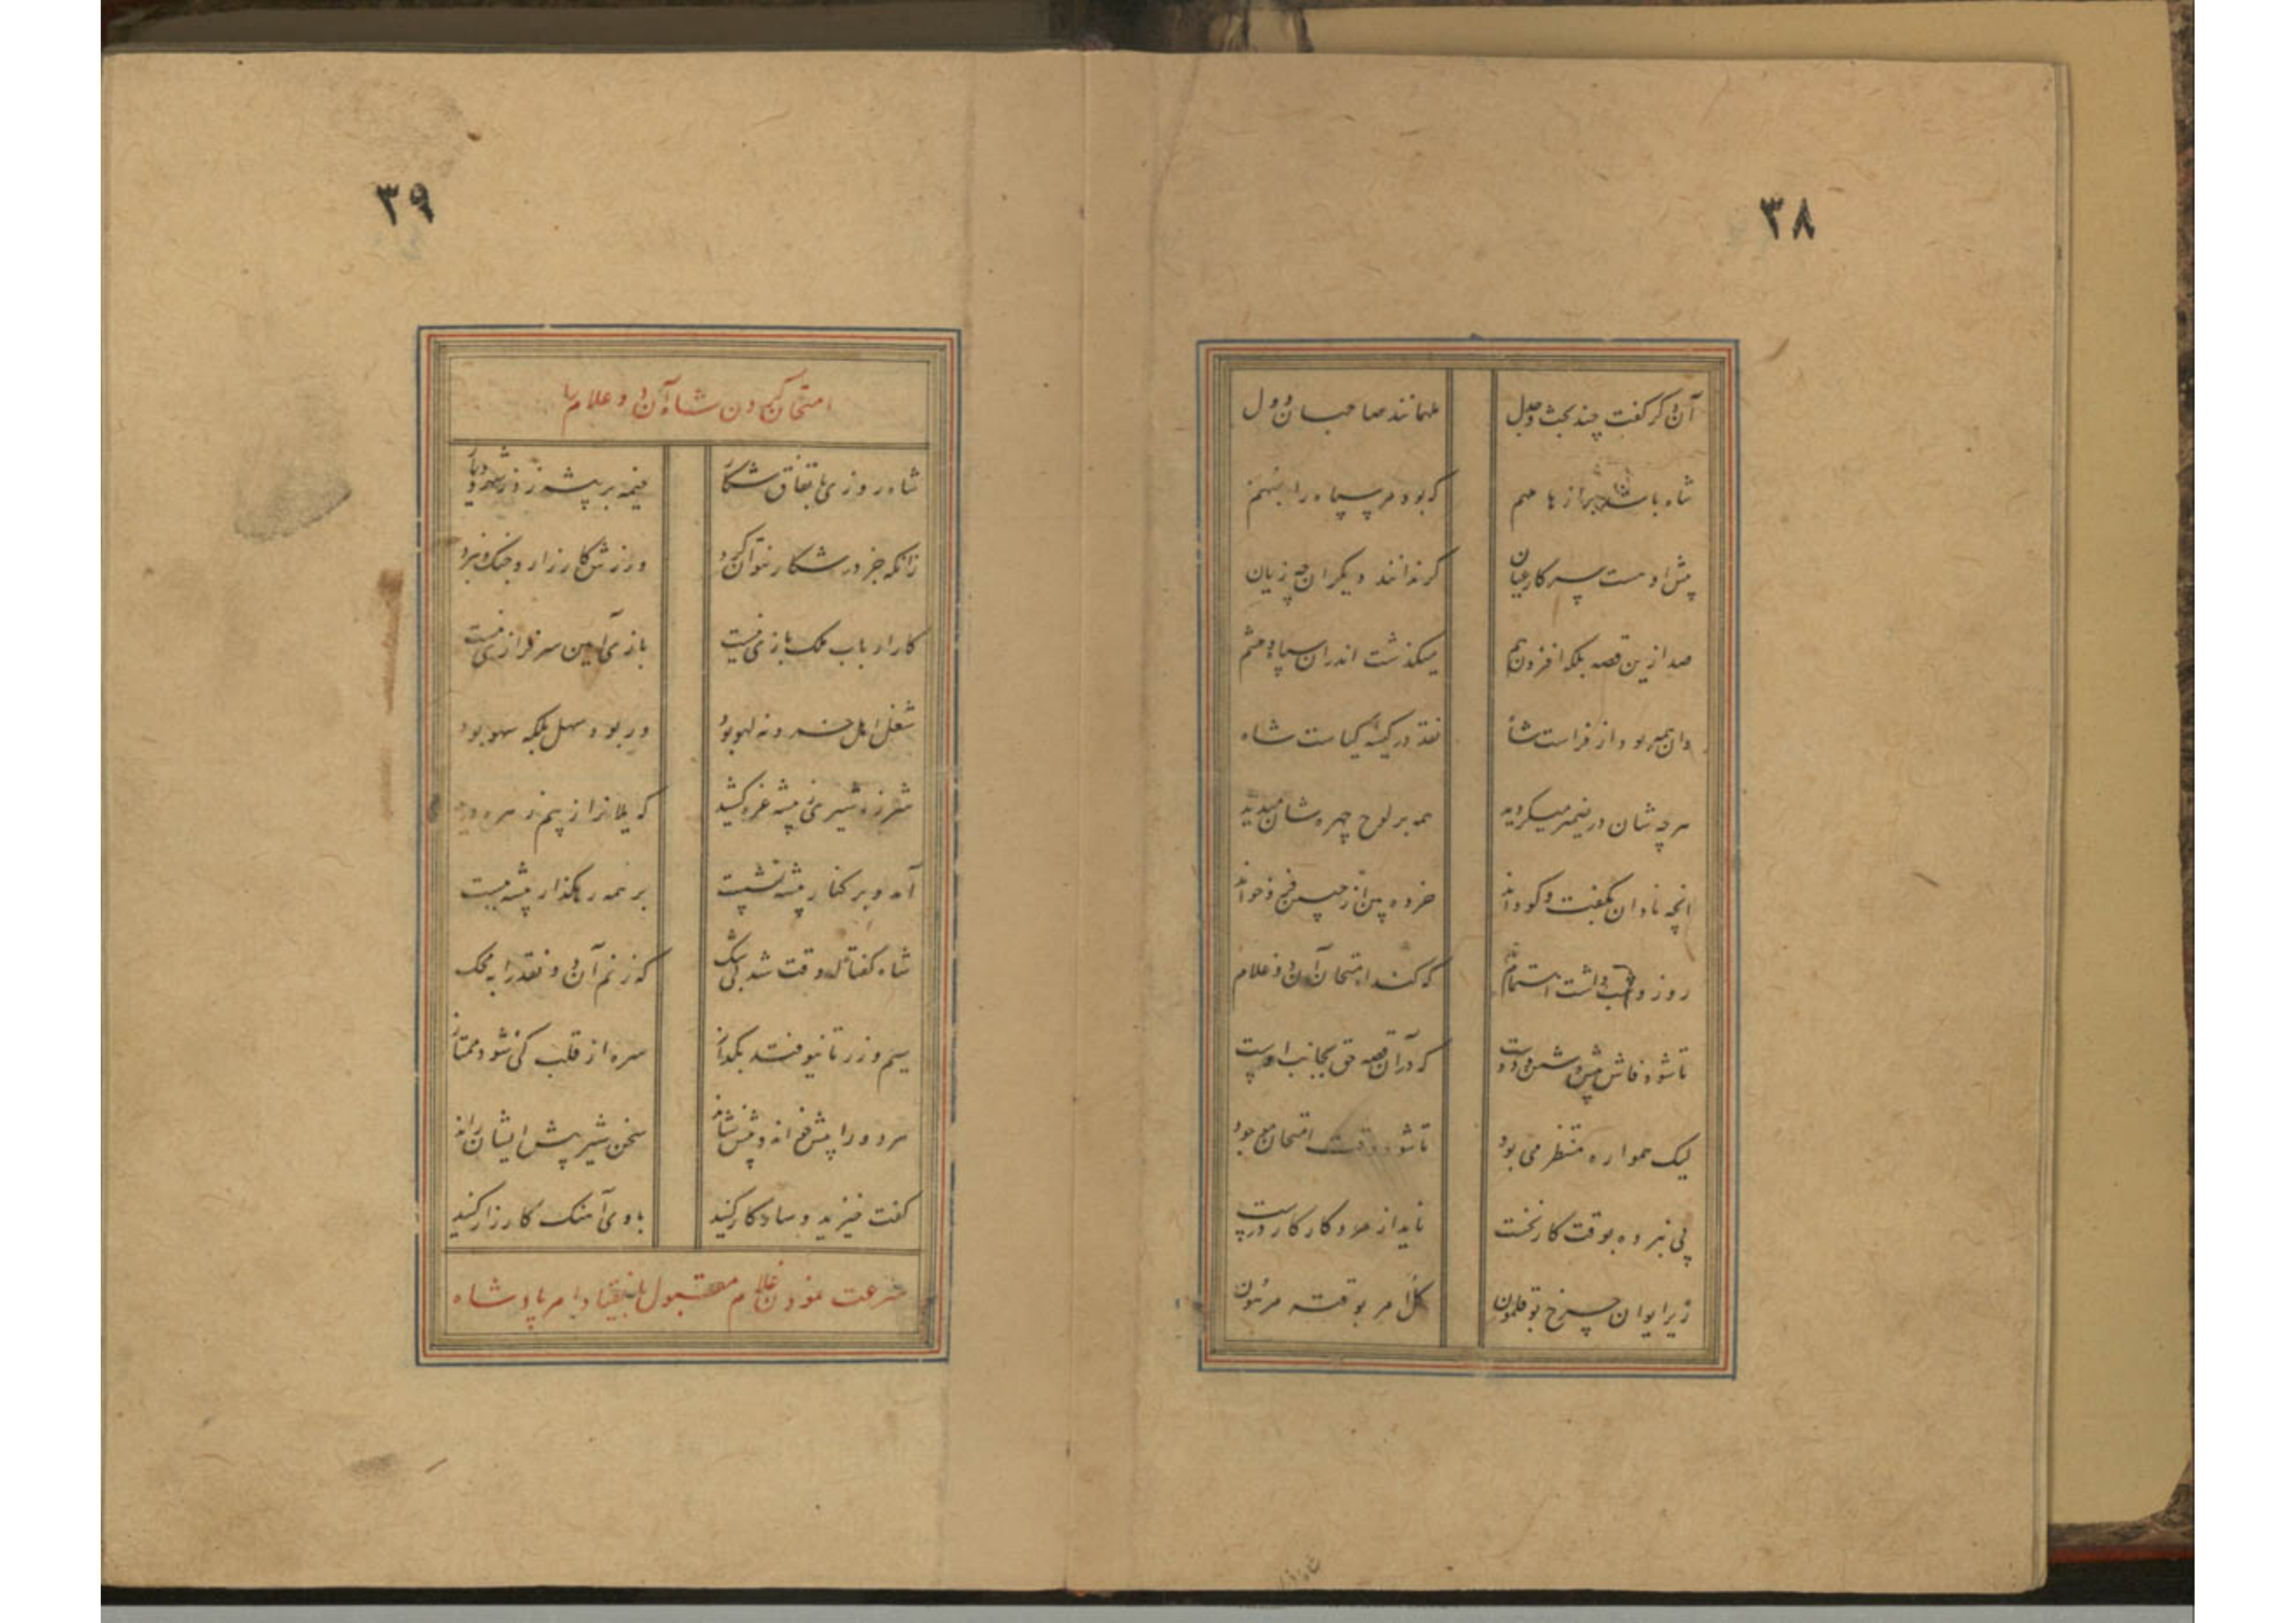 ٣٨
آن دگر گفت چند بحث و جدل
همانند صاحبان دول
شاه باشد ز ها مهم
که بود مر سپاه را
مثل اوست سر کار عیان
گر ندانند دیگران چه زیان
صد ازین قصه بلکه افزون هم
میگذشت اندران سپاه و حشم
وان همه بود از فراست شاه
نقد در کیسه کیاست شاه
هرچه شان در ضمیر میگردید
همه بر لوح چهره شان میدید
انچه نادان نگفت و کودن
خرده بین از جبین
روز و شب داشت اهتمام تمام
که کند امتحان آن دو غلام
تا شود فاش پیش دشمن و دوست
که در آن قصه حق بجانب اوست
لیک همواره منتظر می بود
تا شود وقت امتحان موجود
پی نبرده بوقت کار نخست
ناید از مرد کار کار درست
زیر ایوان چرخ بوقلمون
کل امر بوقته مرهون
٣٩
امتحان کردن شاه آن دو غلام را
شاه روزی باتفاق شکار
خیمه بر بیشه زد
زانکه جز در شکار نتوان کرد
ورزش کارزار و جنک و نبرد
کار ارباب ملک بازی نیست
بازی آیین سرفرازی نیست
شغل اهل خرد نه لهو بود
ور بود سهل بلکه سهو بود
شرزه شیری ز بیشه غره کشید
که یلانرا ز بیم زهره درید
آمد و بر کنار بیشه نشست
بر همه رهکذار بیشه ببست
شاه گفتا که وقت شد بی شک
که زنم آن دو نقد را به محک
سیم و زر تا نیوفتد بکداز
سره از قلب کی شود ممتاز
هر دو را پیش خواند و پیش نشاند
سخن شیر پیش ایشان راند
گفت خیزید و ساز کار کنید
با وی آهنک کارزار کنید
سرعت نمودن غلام مقبول بانقیاد امر پادشاه